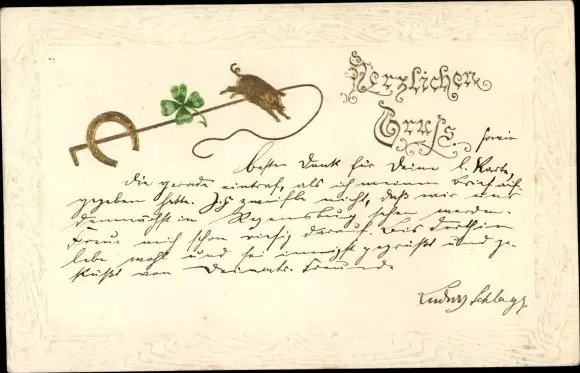 Herzlichen
Gruß. sowie
besten Dank für Deine l. Karte,
die gerade eintraf, als ich meinen Brief auf-
gegeben hatte. Ich zweifle nicht, daß wir uns
demnächst in Regensburg sehen werden.
Freue mich schon riesig darauf. Bis dorthin
lebe wohl und sei innigst gegrüßt und ge-
küßt von Deinem Freunde
Ludwig